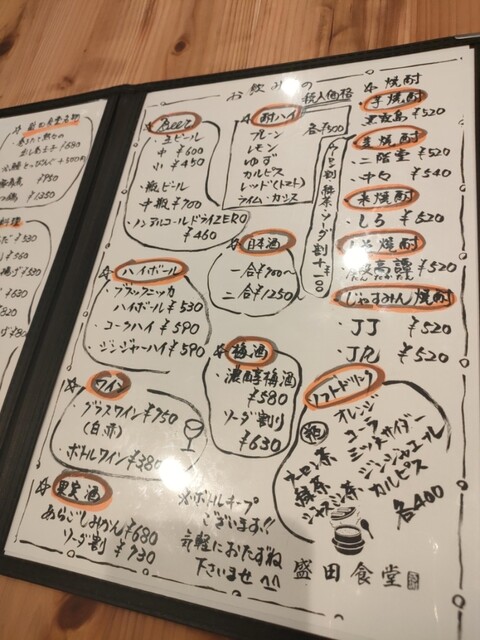 お飲みもの
税入価格
Beer
生ビール
中 ¥600
小 ¥450
・瓶ビール
中瓶 ¥700
・ノンアルコールドライZERO
¥460
酎ハイ
各¥500
プレーン
レモン
ゆず
カルピス
レッド(トマト)
ライム・カシス
日本酒
一合¥700〜
二合¥1250
ハイボール
・ブラックニッカ
ハイボール¥530
・コークハイ ¥590
・ジンジャーハイ¥590
梅酒
・濃醇梅酒
¥580
ソーダ割り
¥630
ワイン
・グラスワイン¥750
(白・赤)
・ボトルワイン
果実酒
あらごしみかん¥680
ソーダ割 ¥730
※ボトルキープ
ございます!!
気軽におたずね
下さいませ ^^
盛田食堂
焼酎
芋焼酎
・黒霧島 ¥520
麦焼酎
・二階堂 ¥520
・中々 ¥540
米焼酎
・しろ ¥520
焼酎
高譚 ¥520
じゃすみん焼酎
・JJ ¥520
・JR ¥520
ウーロン割・緑茶・ソーダ割 +¥100
ソフトドリンク
オレンジ
コーラ
ミツヤサイダー
ジンジャエール
カルピス
ウーロン茶
緑茶
ジャスミン茶
各400
¥680
+500円
¥950
¥1350
料理
¥530